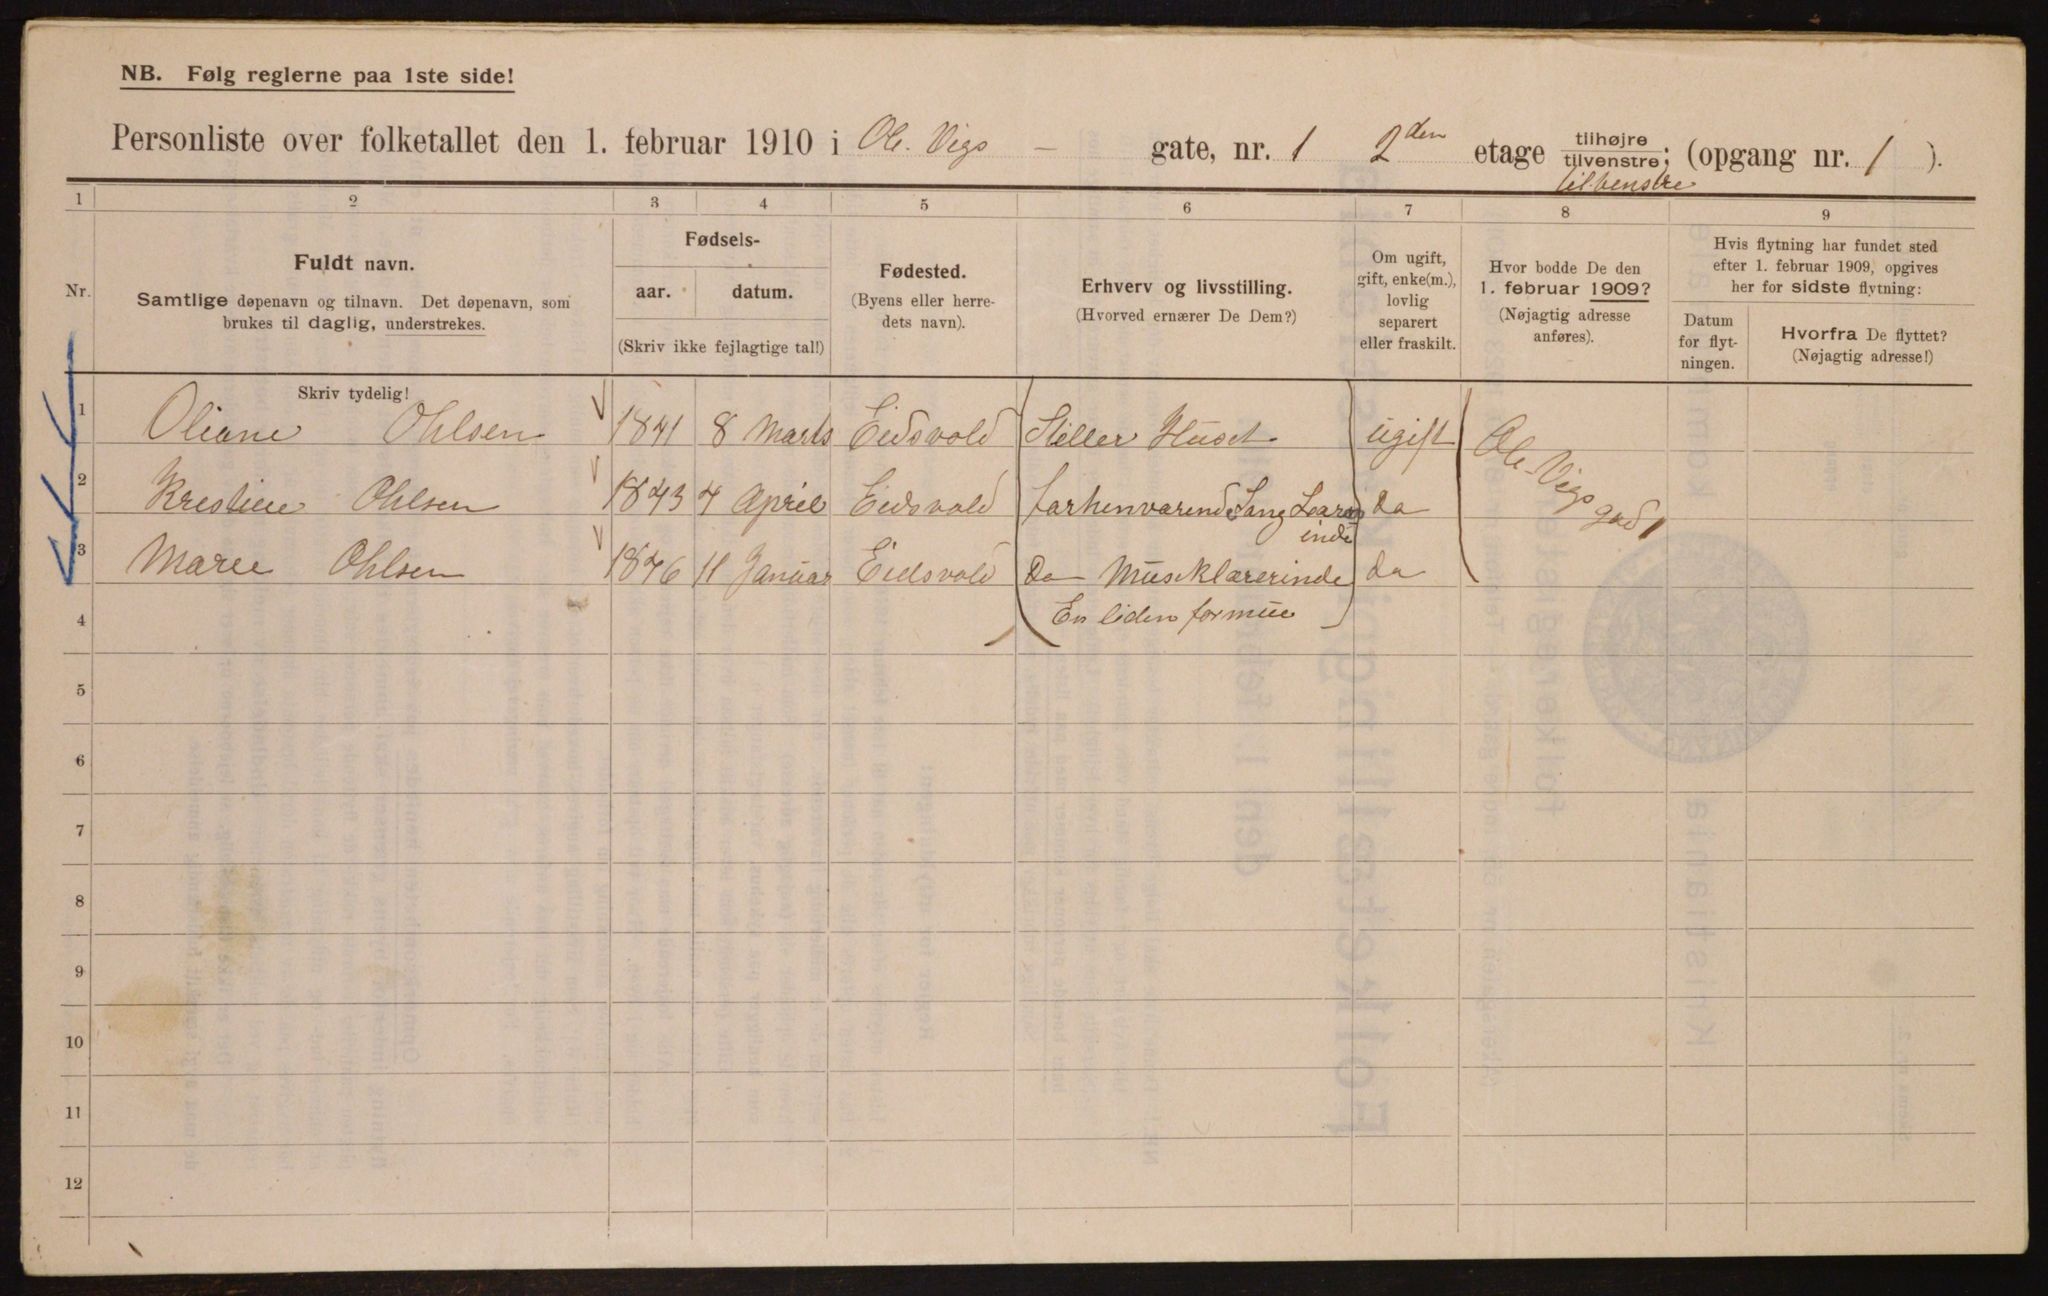 NB. Følg reglerne paa 1ste side!
Personliste over folketallet den 1. februar 1910 i Ole Vigs gate, nr. 1 2den etage tilhøjre/tilvenstre; (opgang nr. 1 ).
tilvenstre
1 2 3 4 5 6 7 8 9
Nr.
Fuldt navn.
Samtlige døpenavn og tilnavn. Det døpenavn, som
brukes til daglig, understrekes.
Fødsels-
aar. datum.
(Skriv ikke fejlagtige tal!)
Fødested.
(Byens eller herre-
dets navn).
Erhverv og livsstilling.
(Hvorved ernærer De Dem?)
Om ugift,
gift, enke(m.),
lovlig
separert
eller fraskilt.
Hvor bodde De den
1. februar 1909?
(Nøjagtig adresse
anføres).
Hvis flytning har fundet sted
efter 1. februar 1909, opgives
her for sidste flytning:
Datum
for flyt-
ningen.
Hvorfra De flyttet?
(Nøjagtig adresse!)
Skriv tydelig!
1 Oliane Ohlsen 1841 8 Marts Eidsvold Steller Huset ugift Ole Vigs gad 1
2 Kristine Ohlsen 1843 7 April Eidsvold forhenværend Sang Lærer da
inde
3 Marie Ohlsen 1846 11 Januar Eidsvold Do Museklærerinde da
4 En liden formue
5
6
7
8
9
10
11
12